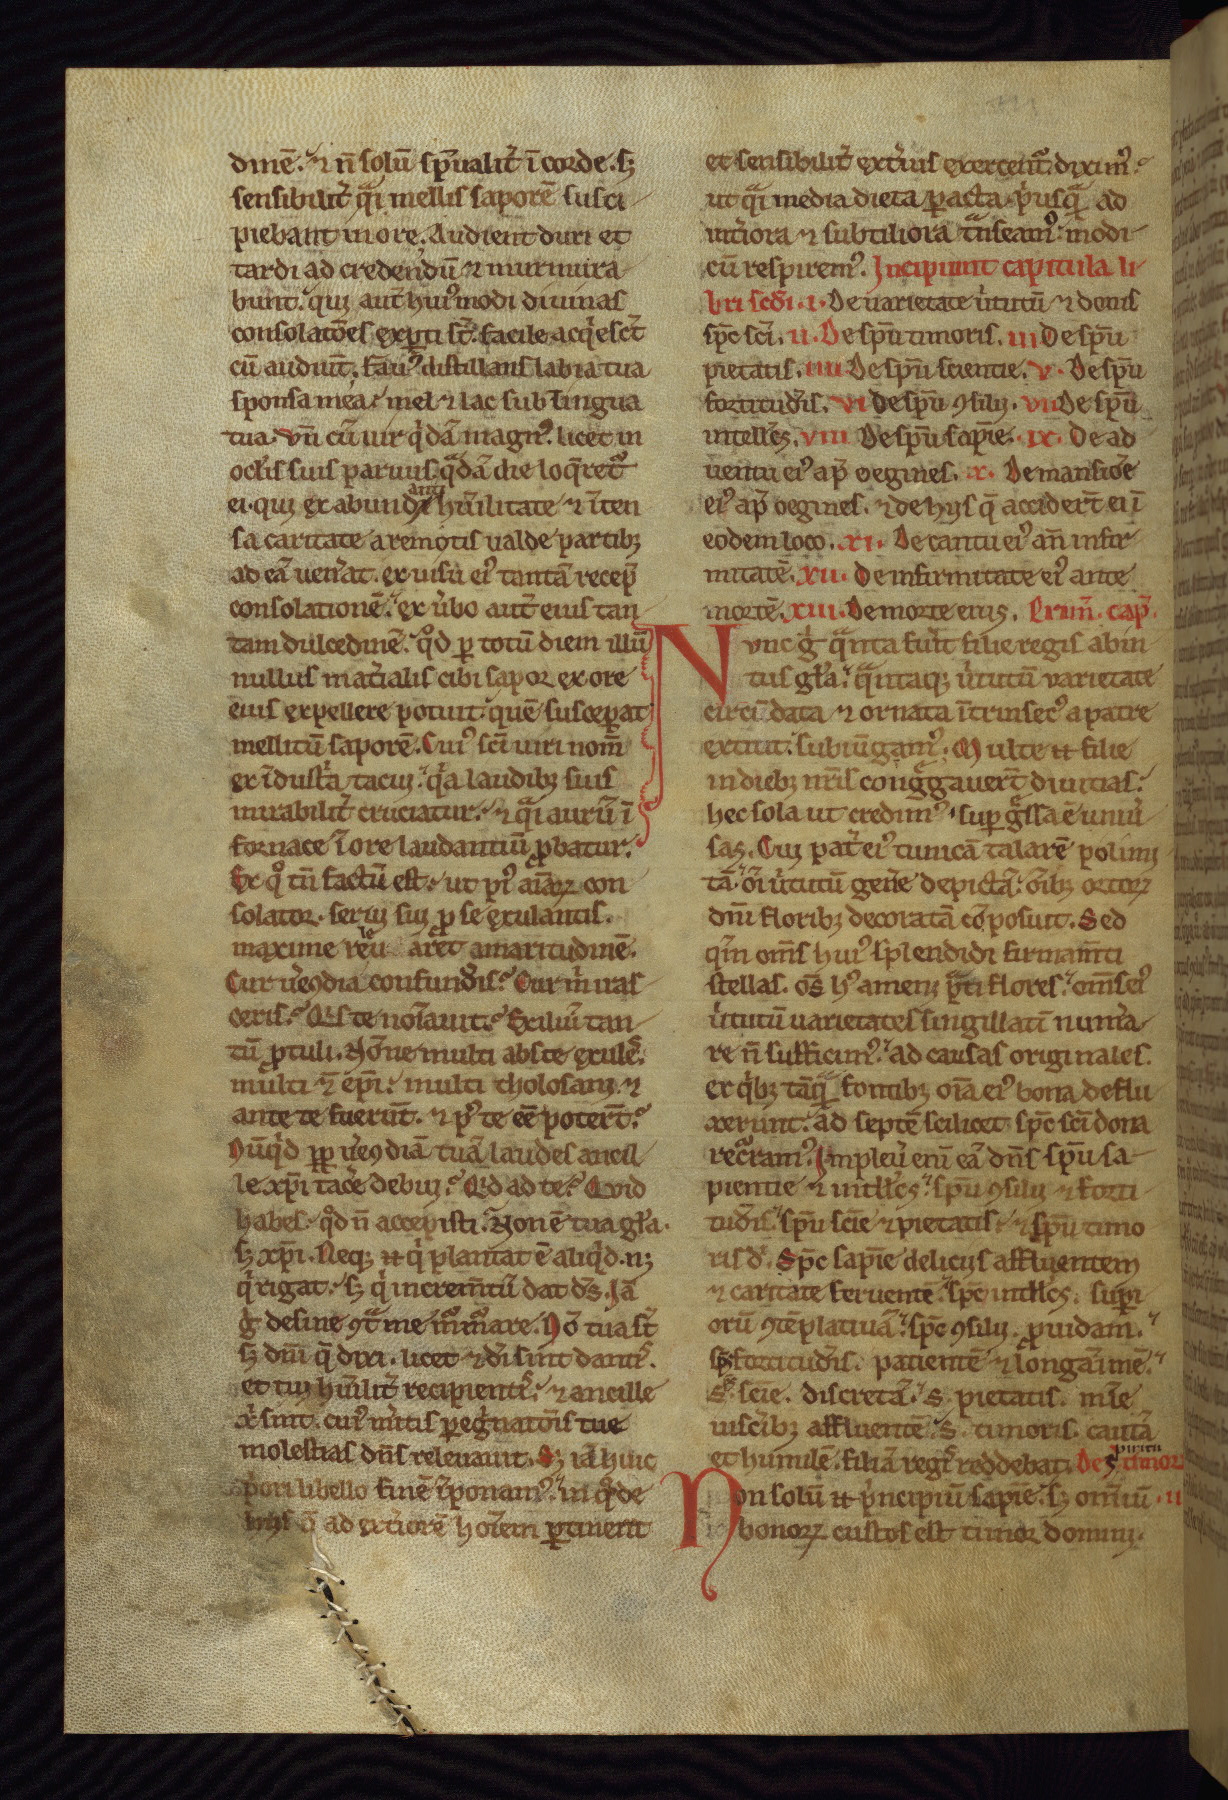 dinē. ⁊ n̄ solū sp̄ualit̄ ī corde. sꝫ
sensibilit̄ q̈i mellis saporē susci
piebant in ore. Audient duri et
tardi ad credendū ⁊ murmura
bunt. qui aut̄ huiꝰmodi diuinas
consolatōes exꝑti st̄. facile acq̇esct̄
cū audiūt. Fauꝰ distillans labia tua
sponsa mea. mel ⁊ lac sub lingua
tua. Vn̄ cū uir q̇dā magnꝰ. licet in
oclis suis paruus. q̈dā die loq̄ret᷑
ei. qui ex abundanti hūilitate ⁊ īten
sa caritate a remotis ualde partibꝫ
ad eā uen̄at. ex uisu eiꝰ tantā recep̄
consolationē. ex u̇bo aut̄ eius tan
tam dulcedinē. qd̊ ꝑ totū diem illū
nullus mat̄ialis cibi sapor ex ore
eius expellere potuit. quē suscepat
mellitū saporē. Cuiꝰ sc̄i uiri nom̄
ex īdust̄a tacui. q̇a laudibꝫ suis
mirabilit̄ cruciatur. ⁊ q̈i aurū ī
fornace ī ore laudantiū ꝓbatur.
Ex qͦ tn̄ factū est. ut pi᷑ aīarꝝ con
solator. seriu sui ꝓ se exulantis.
maxime reu aret amaritudinē.
Cur ue̾ꝯdia confundis. Cur m̊ iras
ceris. Qis te nouit. Exiliū tan
tū ꝓtuli. Nōne multi abs te exulēt.
multi ⁊ ep̄i. multi tholosani. ⁊
ante te fuerūt. ⁊ pꝰ te ee̅ poterūt.
Nūqd̊ ꝓp ue̾ꝯdiā tuā laudes ancil
le xp̄i tace̾ debui. Qd ad te. Quid
habes qd̊ n̄ accepisti. Non ē tua gl̄a.
sꝫ xp̄i. Neqꝫ n̄ q̇ plantat ē aliqd̊. nꝫ
q̇ rigat. sꝫ q̇ increm̄tū dat ds̄. Iā
g̊ desine ꝯt̄ me m̊m̊are. Nō tua st̄
sꝫ dn̄i q̄ dixi. licet ⁊ dn̄i sint dant̄.
et tui hūilit̄ recipient̄. ⁊ ancille
x̄ sint. cuiꝰ m̄itis ꝑeg̊natōis tue
molestias dn̄s releuauit. Sꝫ iā huic
p̊ori libello finē īponamꝰ. in q̊ de
hiis q̄ ad ext̄iorē hoīem ꝑtinent
et sensibilit̄ ext̄ius exercent᷑. diximꝰ.
ut q̈i media dieta ꝑacta. p̊usq̈ ad
int̄iora ⁊ subtiliora t̄nseamꝰ. modi
cū respiremꝰ. Incipiunt capitula li
bri sc̄di. i. De uarietate u̇tutū ⁊ donis
sp̄c sc̄i. ii. De sp̄u timoris. iii De sp̄u
pietatis. iiii De sp̄u scientie. v. De sp̄u
fortitud̄is. vi De sp̄u ꝯsilii. vii De sp̄u
intell̄cꝫ. viii De sp̄u sapīe. ix. De ad
uentu eiꝰ ap̄ oegines. x. De mansiōe
eiꝰ ap̄ oegines. ⁊ de hiis q̄ accidert̄ ei ī
eodem loco. xi. De cantu eiꝰ an̄ infir
mitatē. xii. De infirmitate eiꝰ ante
mortē. xiii. De morte eius. Prim̄. cap̄.
Nvnc g̊ q̈nta fuit̄ filie regis abin
tus gl̄a. q̈ntaqꝫ u̇tutū uarietate
circūdata ⁊ ornata īt̄nsecꝰ a patre
extitit. subiūgamꝰ. Multe n̄ filie
in diebꝫ nr̄is cong̊gauert̄ diuitias.
hec sola ut credimꝰ. suꝑg̈ssa ē uniu̇
sas. Cui pat̄ eiꝰ tunicā talarē polimi
tā. oī u̇tutū gen̄e depictā. oībꝫ ortorꝝ
dn̄i floribꝫ decoratā cōposuit. Sed
q̄m om̄s huiꝰ splendidi firmam̄ti
stellas. os̄ hꝰ ameni p̈ti flores. om̄s eiꝰ
u̇tutū uarietates singillatī num̄a
re n̄ sufficimꝰ. ad causas originales.
ex q̇bꝫ tāq̈ fontibꝫ oīa eiꝰ bona deflu
xerunt. ad septē scilicet sp̄c sc̄i dona
rec̈ramꝰ. Impleu̇ eni eā dn̄s sp̄u sa
pientie ⁊ intll̄cs. sp̄u ꝯsilii ⁊ forti
tud̄is. sp̄u scīe ⁊ pietatis. ⁊ sp̄u timo
ris d̄. Sp̄c sapīe deliciis affluentem
⁊ caritate feruentē. sp̄c intll̄cs. suꝑi
orū ꝯtēplatiuā. sp̄c ꝯsilii. ꝓuidam.
sp̄c fortitud̄is. patientē ⁊ longaīmē.
s. scīe. discretā. s. pietatis. mīe
uisc̄ibꝫ affluentē. s. timoris. cautā
et humilē. filiā reg̊ reddebat. De spiritu timor̄
Non solū n̄ p̊ncipiū sapīe. sꝫ om̄iū . ii
bonorꝝ custos est timor domini.